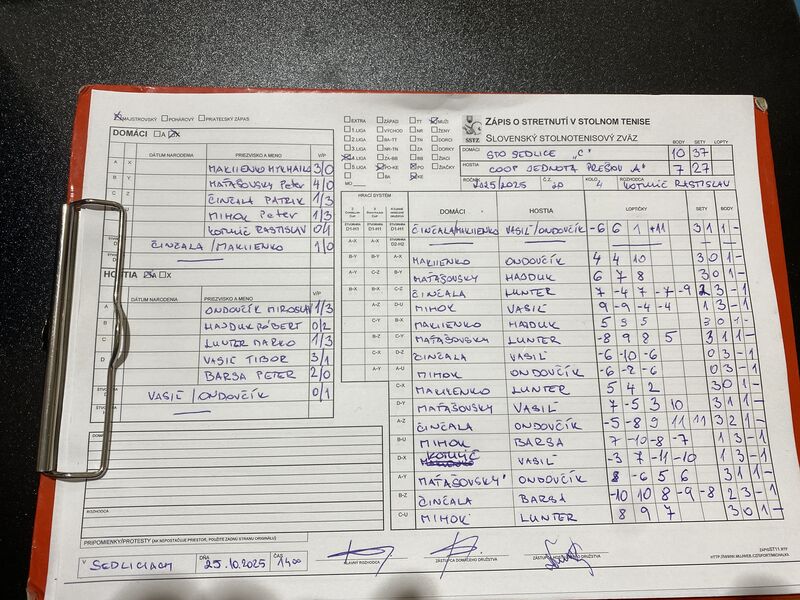 MAJSTROVSKÝ POHÁROVÝ PRIATEĽSKÝ ZÁPAS
DOMÁCI A X
DÁTUM NARODENIA PRIEZVISKO A MENO V/P
A X MAKIIENKO MYKHAILO 3/0
B Y MAŤAŠOVSKÝ PETER 4/0
C Z ČINČALA PATRIK 1/3
MIHOK PETER 1/3
KOTULIČ RASTISLAV 0/1
ČINČALA/MAKIIENKO 1/0
HOSTIA A X
DÁTUM NARODENIA PRIEZVISKO A MENO V/P
A ONDOVČÍK MIROSLAV 1/3
B HAJDUK RÓBERT 0/2
C LUNTER MARKO 1/3
D VASIĽ TIBOR 3/1
BARSA PETER 2/0
VASIĽ/ONDOVČÍK 0/1
ROZHODCA
PRIPOMIENKY/PROTESTY (AK NEPOSTAČUJE PRIESTOR, POUŽITE ZADNÚ STRANU ORIGINÁLU)
V SEDLICIACH DŇA 25.10.2025 ČAS 14 00
HLAVNÝ ROZHODCA ZÁSTUPCA DOMÁCEHO DRUŽSTVA ZÁSTUPCA HOSŤUJÚCEHO DRUŽSTVA
EXTRA ZÁPAD TT MUŽI
1.LIGA VÝCHOD NR ŽENY
2.LIGA BA-TT TN DORCI
3.LIGA NR-TN ZA DORKY
4.LIGA ZA-BB BB ŽIACI
5.LIGA PO-KE PO ŽIAČKY
MO BA KE
SSTZ
ZÁPIS O STRETNUTÍ V STOLNOM TENISE
SLOVENSKÝ STOLNOTENISOVÝ ZVÄZ
BODY SETY LOPTY
DOMÁCI STO SEDLICE „C" 10 37
HOSTIA COOP JEDNOTA PREŠOV A" 7 27
ROČNÍK 2025/2025 Č.Z. 20 KOLO 4 ROZHODCA KOTULIČ RASTISLAV
HRACÍ SYSTÉM
DOMÁCI HOSTIA LOPTIČKY SETY BODY
ČINČALA/MAKIIENKO VASIĽ/ONDOVČÍK -6 6 1 +11 3 1 1 -
B-Y A-X MAKIIENKO ONDOVČÍK 4 4 10 3 0 1 -
A-Y C-Z B-Y MAŤAŠOVSKÝ HAJDUK 6 7 8 3 0 1 -
B-X B-X C-Z ČINČALA LUNTER 7 -4 7 -7 -9 2 3 - 1
A-Z D-U MIHOK VASIĽ 9 -9 -4 -4 1 3 - 1
C-Y B-X MAKIIENKO HAJDUK 5 5 5 3 0 1 -
B-Z C-Y MAŤAŠOVSKÝ LUNTER -8 9 8 5 3 1 1 -
C-X D-Z ČINČALA VASIĽ -6 -10 -6 0 3 - 1
A-Y A-U MIHOK ONDOVČÍK -6 -2 -6 0 3 - 1
C-X MAKIIENKO LUNTER 5 4 2 3 0 1 -
D-Y MAŤAŠOVSKÝ VASIĽ 7 -5 3 10 3 1 1 -
A-Z ČINČALA ONDOVČÍK -5 -8 9 11 11 3 2 1 -
B-U MIHOK BARSA 7 -10 -8 -7 1 3 - 1
D-X KOTULIČ VASIĽ -3 7 -11 -10 1 3 - 1
A-Y MAŤAŠOVSKÝ ONDOVČÍK 8 -6 5 6 3 1 1 -
B-Z ČINČALA BARSA -10 10 8 -9 -8 2 3 - 1
C-U MIHOK LUNTER 8 9 7 3 0 1 -
ZÁPISST11.XTF